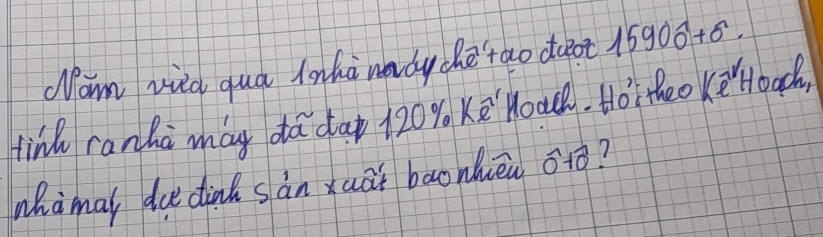 Năm vừa qua 1nhà máy chế tạo được 1590ô tô.
tính ra nhà máy đã đạt 120% Kế Hoạch. Hỏi theo Kế Hoạch,
nhà máy dự định sản xuất bao nhiêu ô tô?